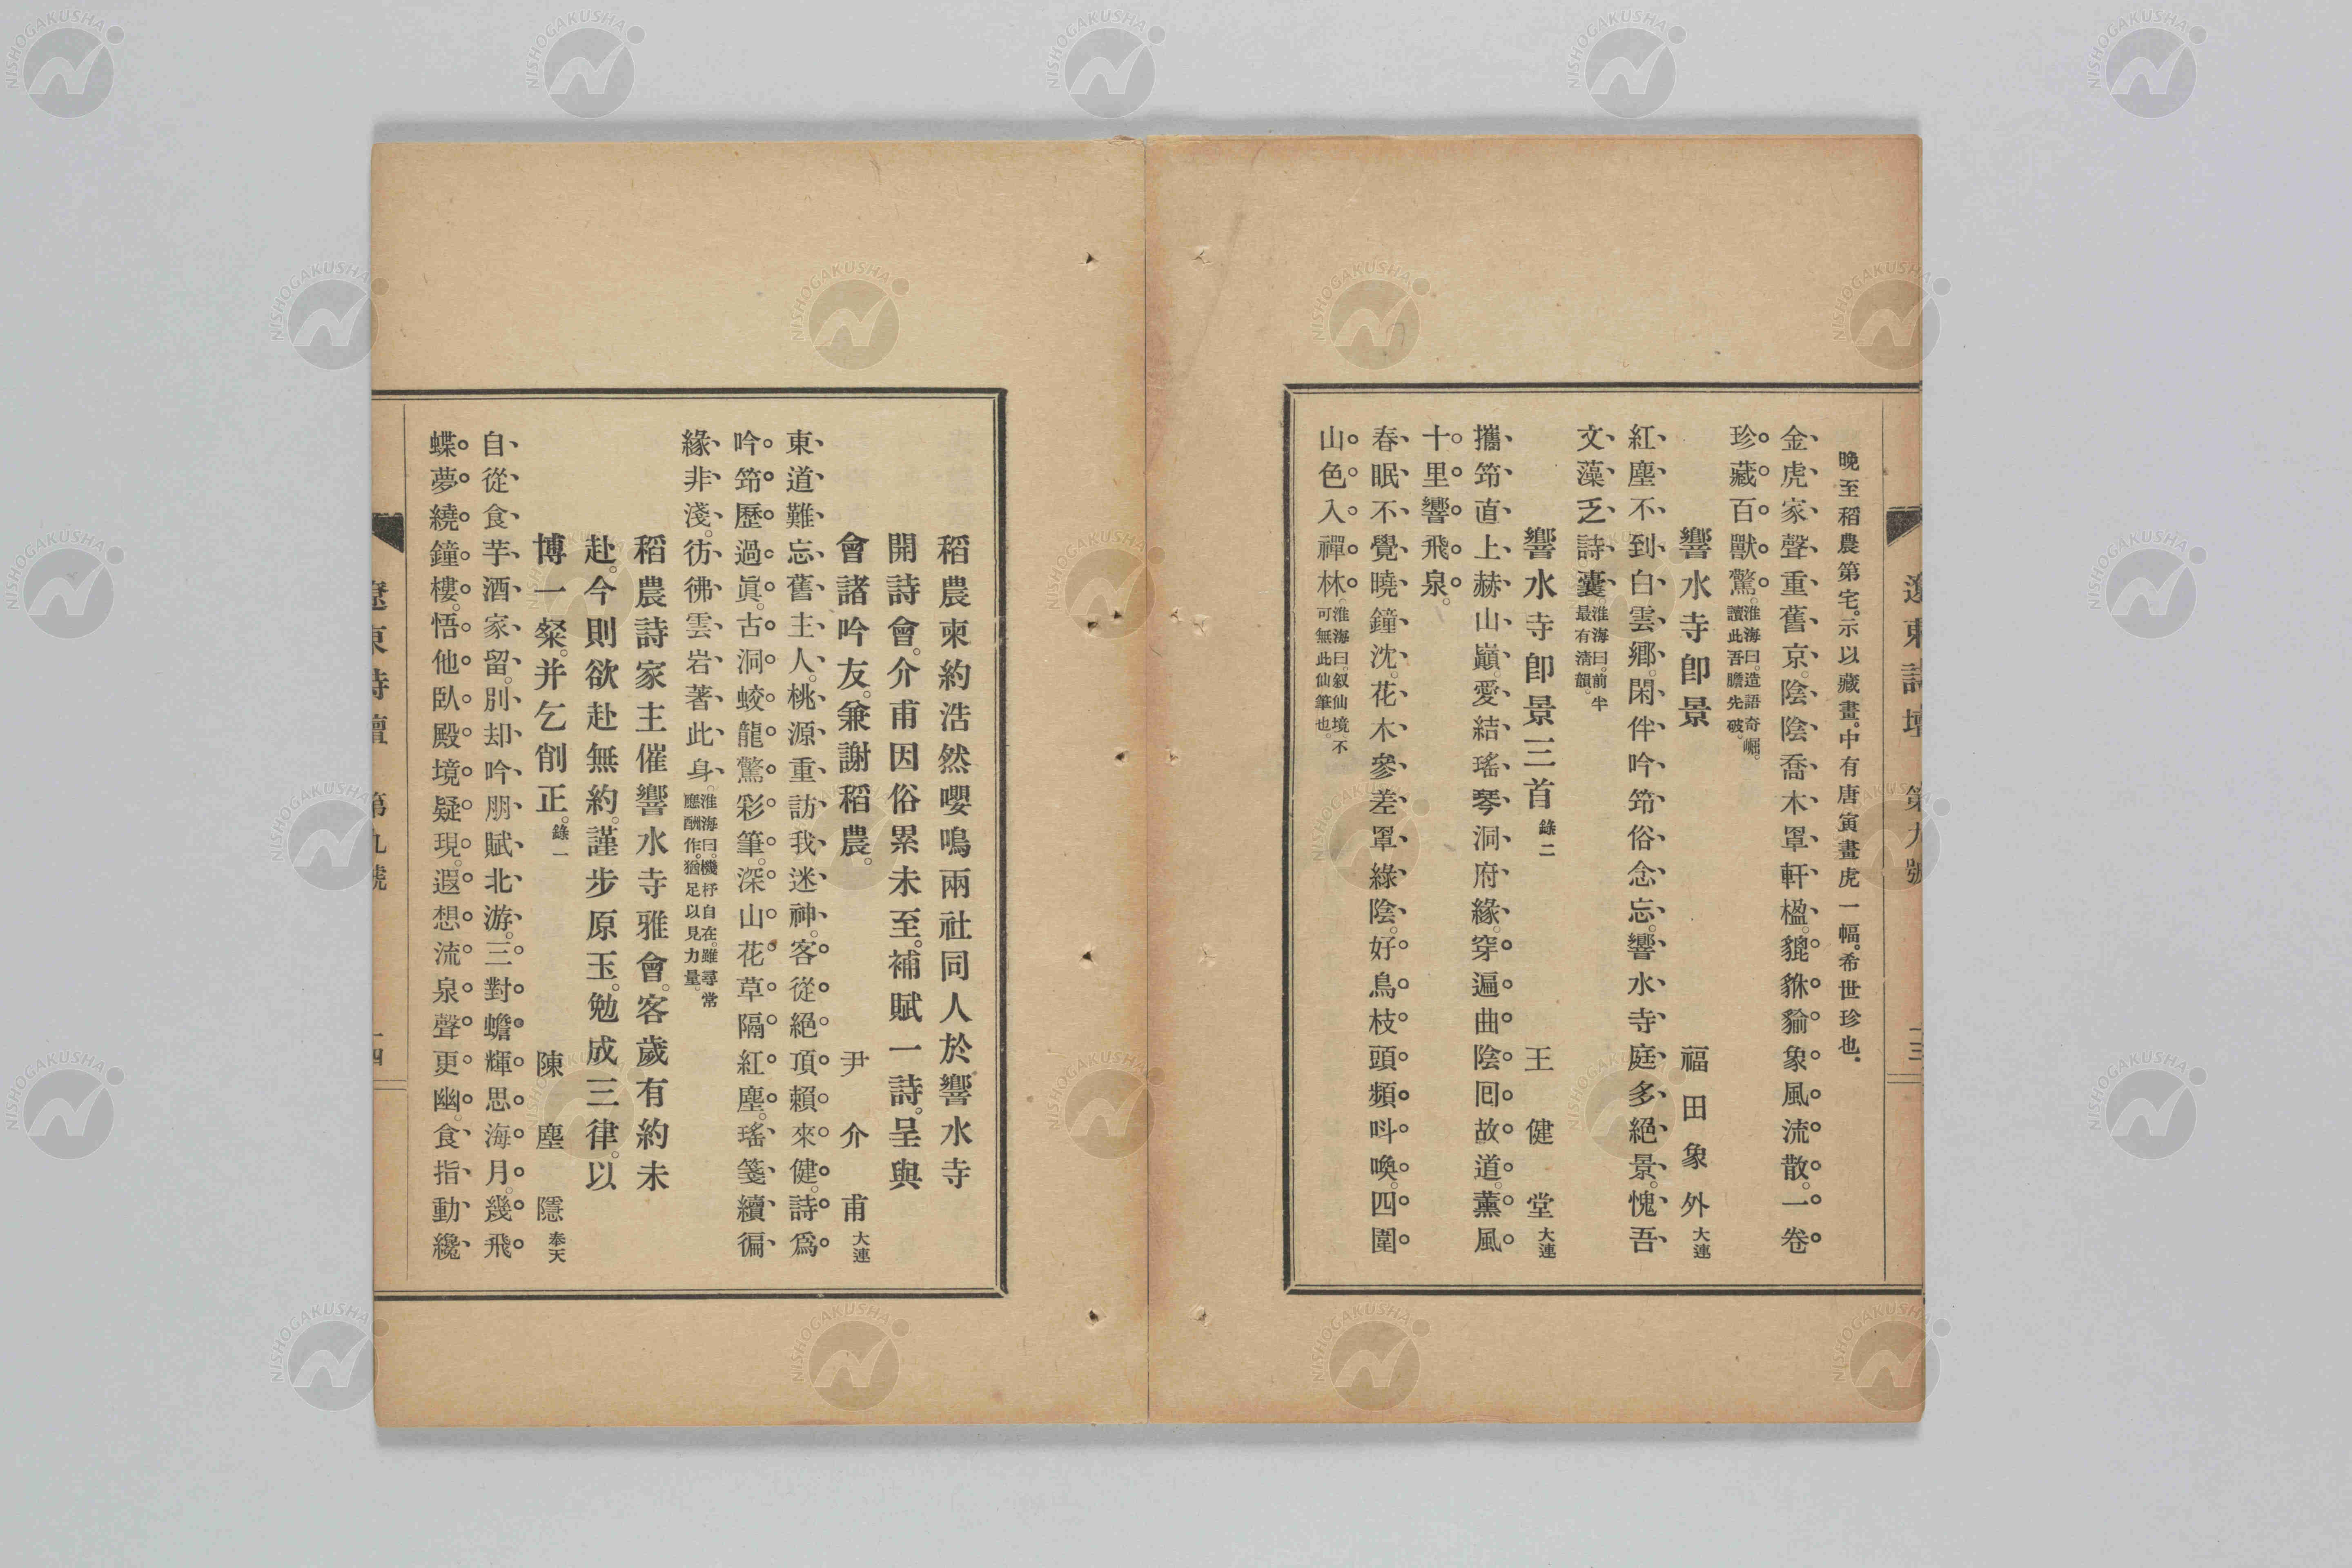 遼東詩壇 第九號 十三
晚至稻農第宅。示以藏畫。中有唐寅畫虎一幅。希世珍也。
金虎家聲重舊京。陰陰喬木罩軒楹。貔貅貐象風流散。一卷
珍藏百獸驚。淮海曰。造語奇崛。讀此吾膽先破。
響水寺卽景 福田象外 大連
紅塵不到白雲鄉。閑伴吟筇俗念忘。響水寺庭多絕景。愧吾
文藻乏詩囊。淮海曰。前半最有淸韻。
響水寺卽景三首 錄二 王健堂 大連
攜筇直上赫山巓。愛結瑤琴洞府緣。穿遍曲陰囘故道。薰風
十里響飛泉。
春眠不覺曉鐘沈。花木參差罩綠陰。好鳥枝頭頻呌喚。四圍
山色入禪林。淮海曰。叙仙境不可無此仙筆也。
稻農柬約浩然嚶鳴兩社同人於響水寺
開詩會。介甫因俗累未至。補賦一詩。呈與
會諸吟友。兼謝稻農。 尹介甫 大連
東道難忘舊主人。桃源重訪我迷神。客從絕頂賴來健。詩爲
吟筇歷過眞。古洞蛟龍驚彩筆。深山花草隔紅塵。瑤箋續徧
緣非淺。彷彿雲岩著此身。淮海曰。機杼自在。雖尋常應酬作。猶足以見力量。
稻農詩家主催響水寺雅會。客歲有約未
赴。今則欲赴無約。謹步原玉。勉成三律。以
博一粲。并乞削正。錄一 陳塵隱 奉天
自從食芋酒家留。別却吟朋賦北游。三對蟾輝思海月。幾飛
蝶夢繞鐘樓。悟他臥殿境疑現。遐想流泉聲更幽。食指動纔
遼東詩壇 第九號 十四
NISHOGAKUSHA